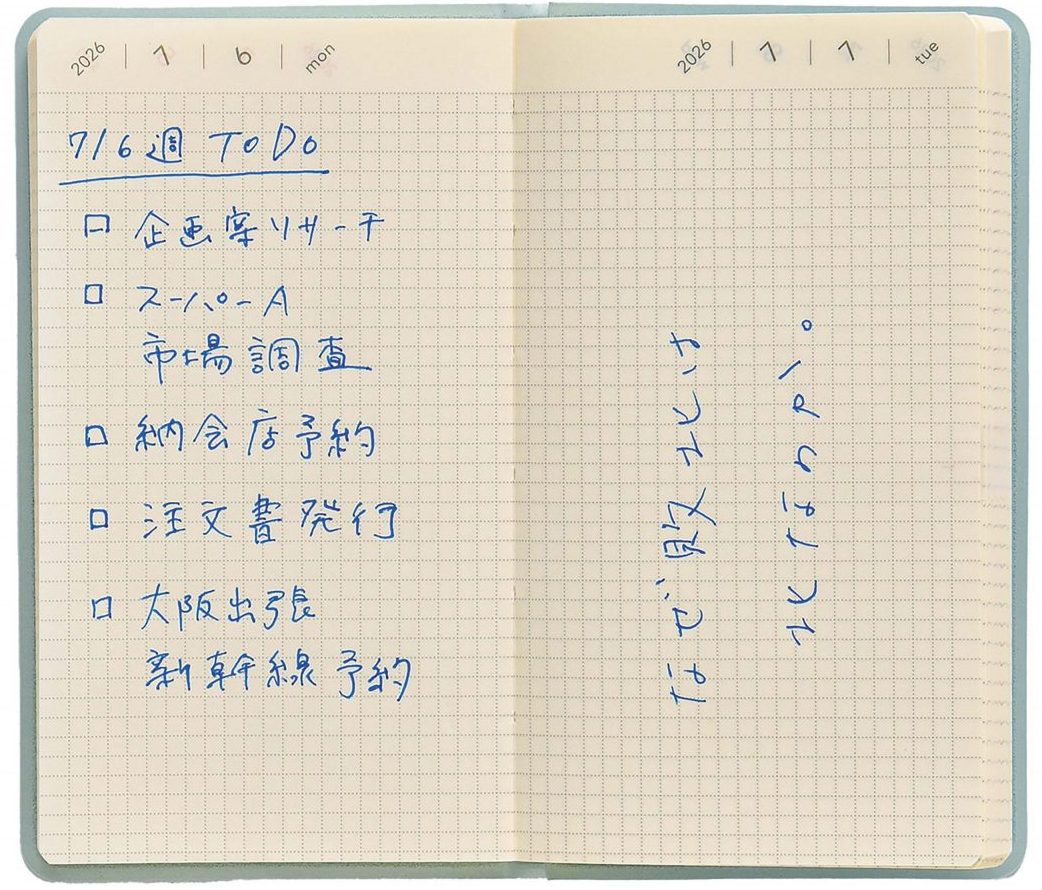 2026 | 7 | 6 | mon
7/6週 ToDo
□ 企画案リサーチ
□ スーパーA
市場調査
□ 納会店予約
□ 注文書発行
□ 大阪出張
新幹線予約
2026 | 7 | 7 | tue
なぜ敗北は
北なのか。